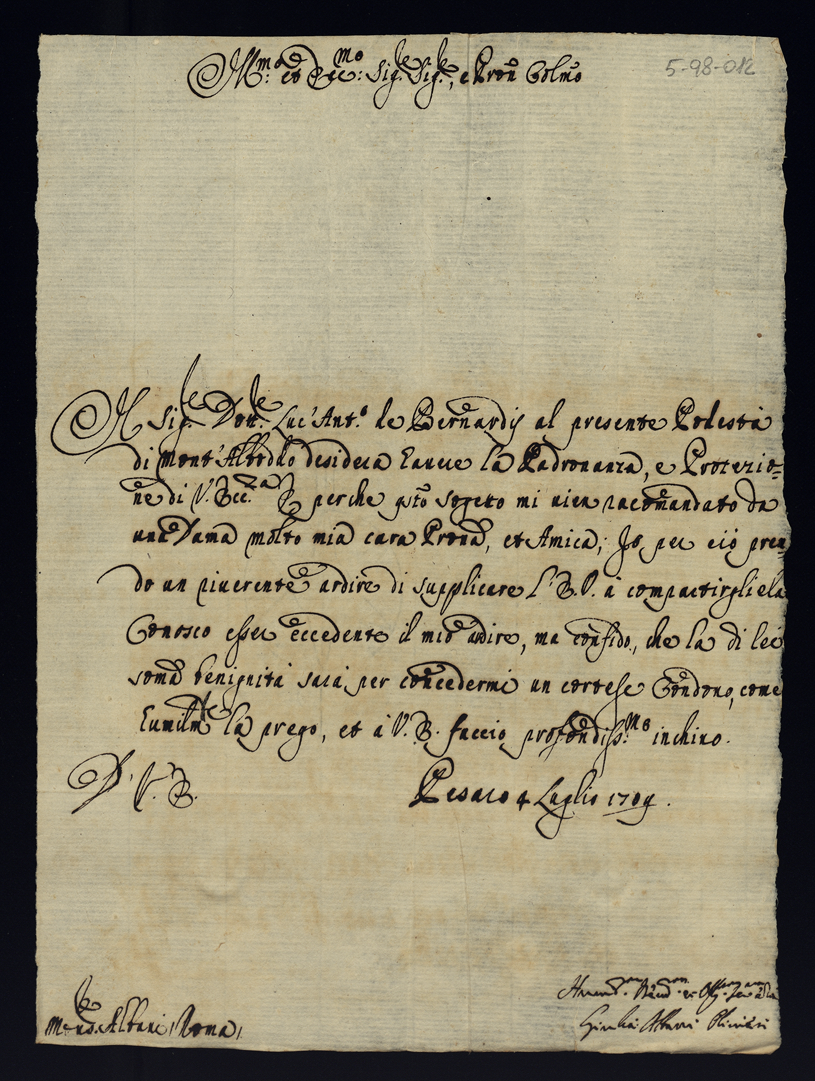 Ill.mo et Ecc.mo Sig.re Sig.re, e Pron Colmo
5-98-012
Il Sig.re Dott.re Luc'Ant.o de Bernardis al presente Podestà
di Mont'Alboddo desidera hauere la Padronanza, e Protezio=
ne di V. Ecc.za E perche qsto sogeto mi uien racomandato da
una Dama molto mia cara Prona, et Amica, Io per ciò pren=
do un riuerente ardire di supplicare L'E.V. à compartirgliela
Conosco esser eccedente il mio ardire, ma confido, che la di lei
soma benignità sarà per concedermi un cortese Condono, come
humilmte la prego, et à V.E. faccio profondiss.mo inchino.
D' V.E.
Pesaro 4 Luglio 1709.
Mons.re Albani, Roma,
Giulia Albani Olivieri